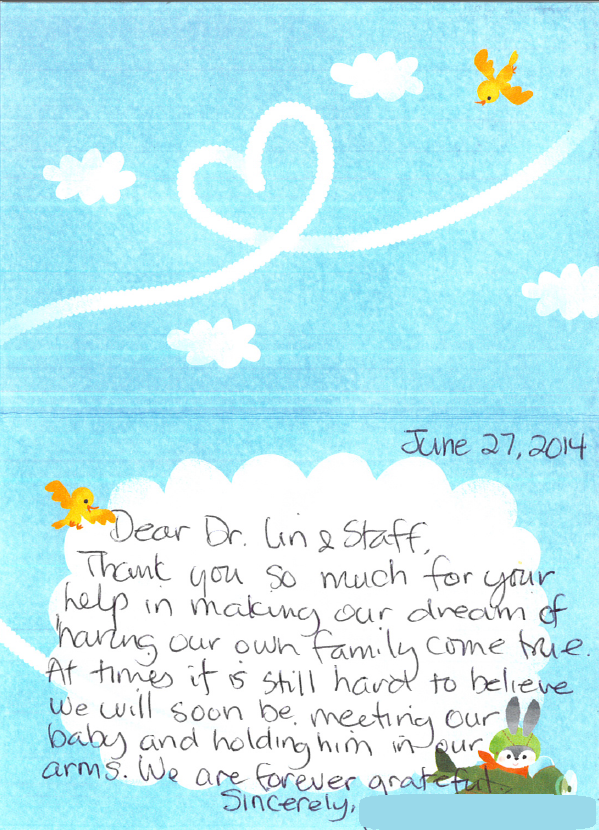 June 27, 2014
Dear Dr. Lin & Staff,
Thank you so much for your
help in making our dream of
having our own family come true.
At times it is still hard to believe
we will soon be meeting our
baby and holding him in our
arms. We are forever grateful.
Sincerely,